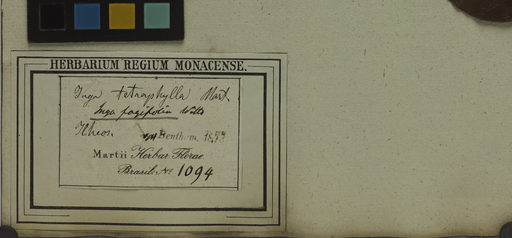 HERBARIUM REGIUM MONACENSE.
Inga tetraphylla Mart.
Inga fagifolia Willd
Ilheos.
Bentham. 1874
Martii Herbar. Florae
Brasil. No 1094